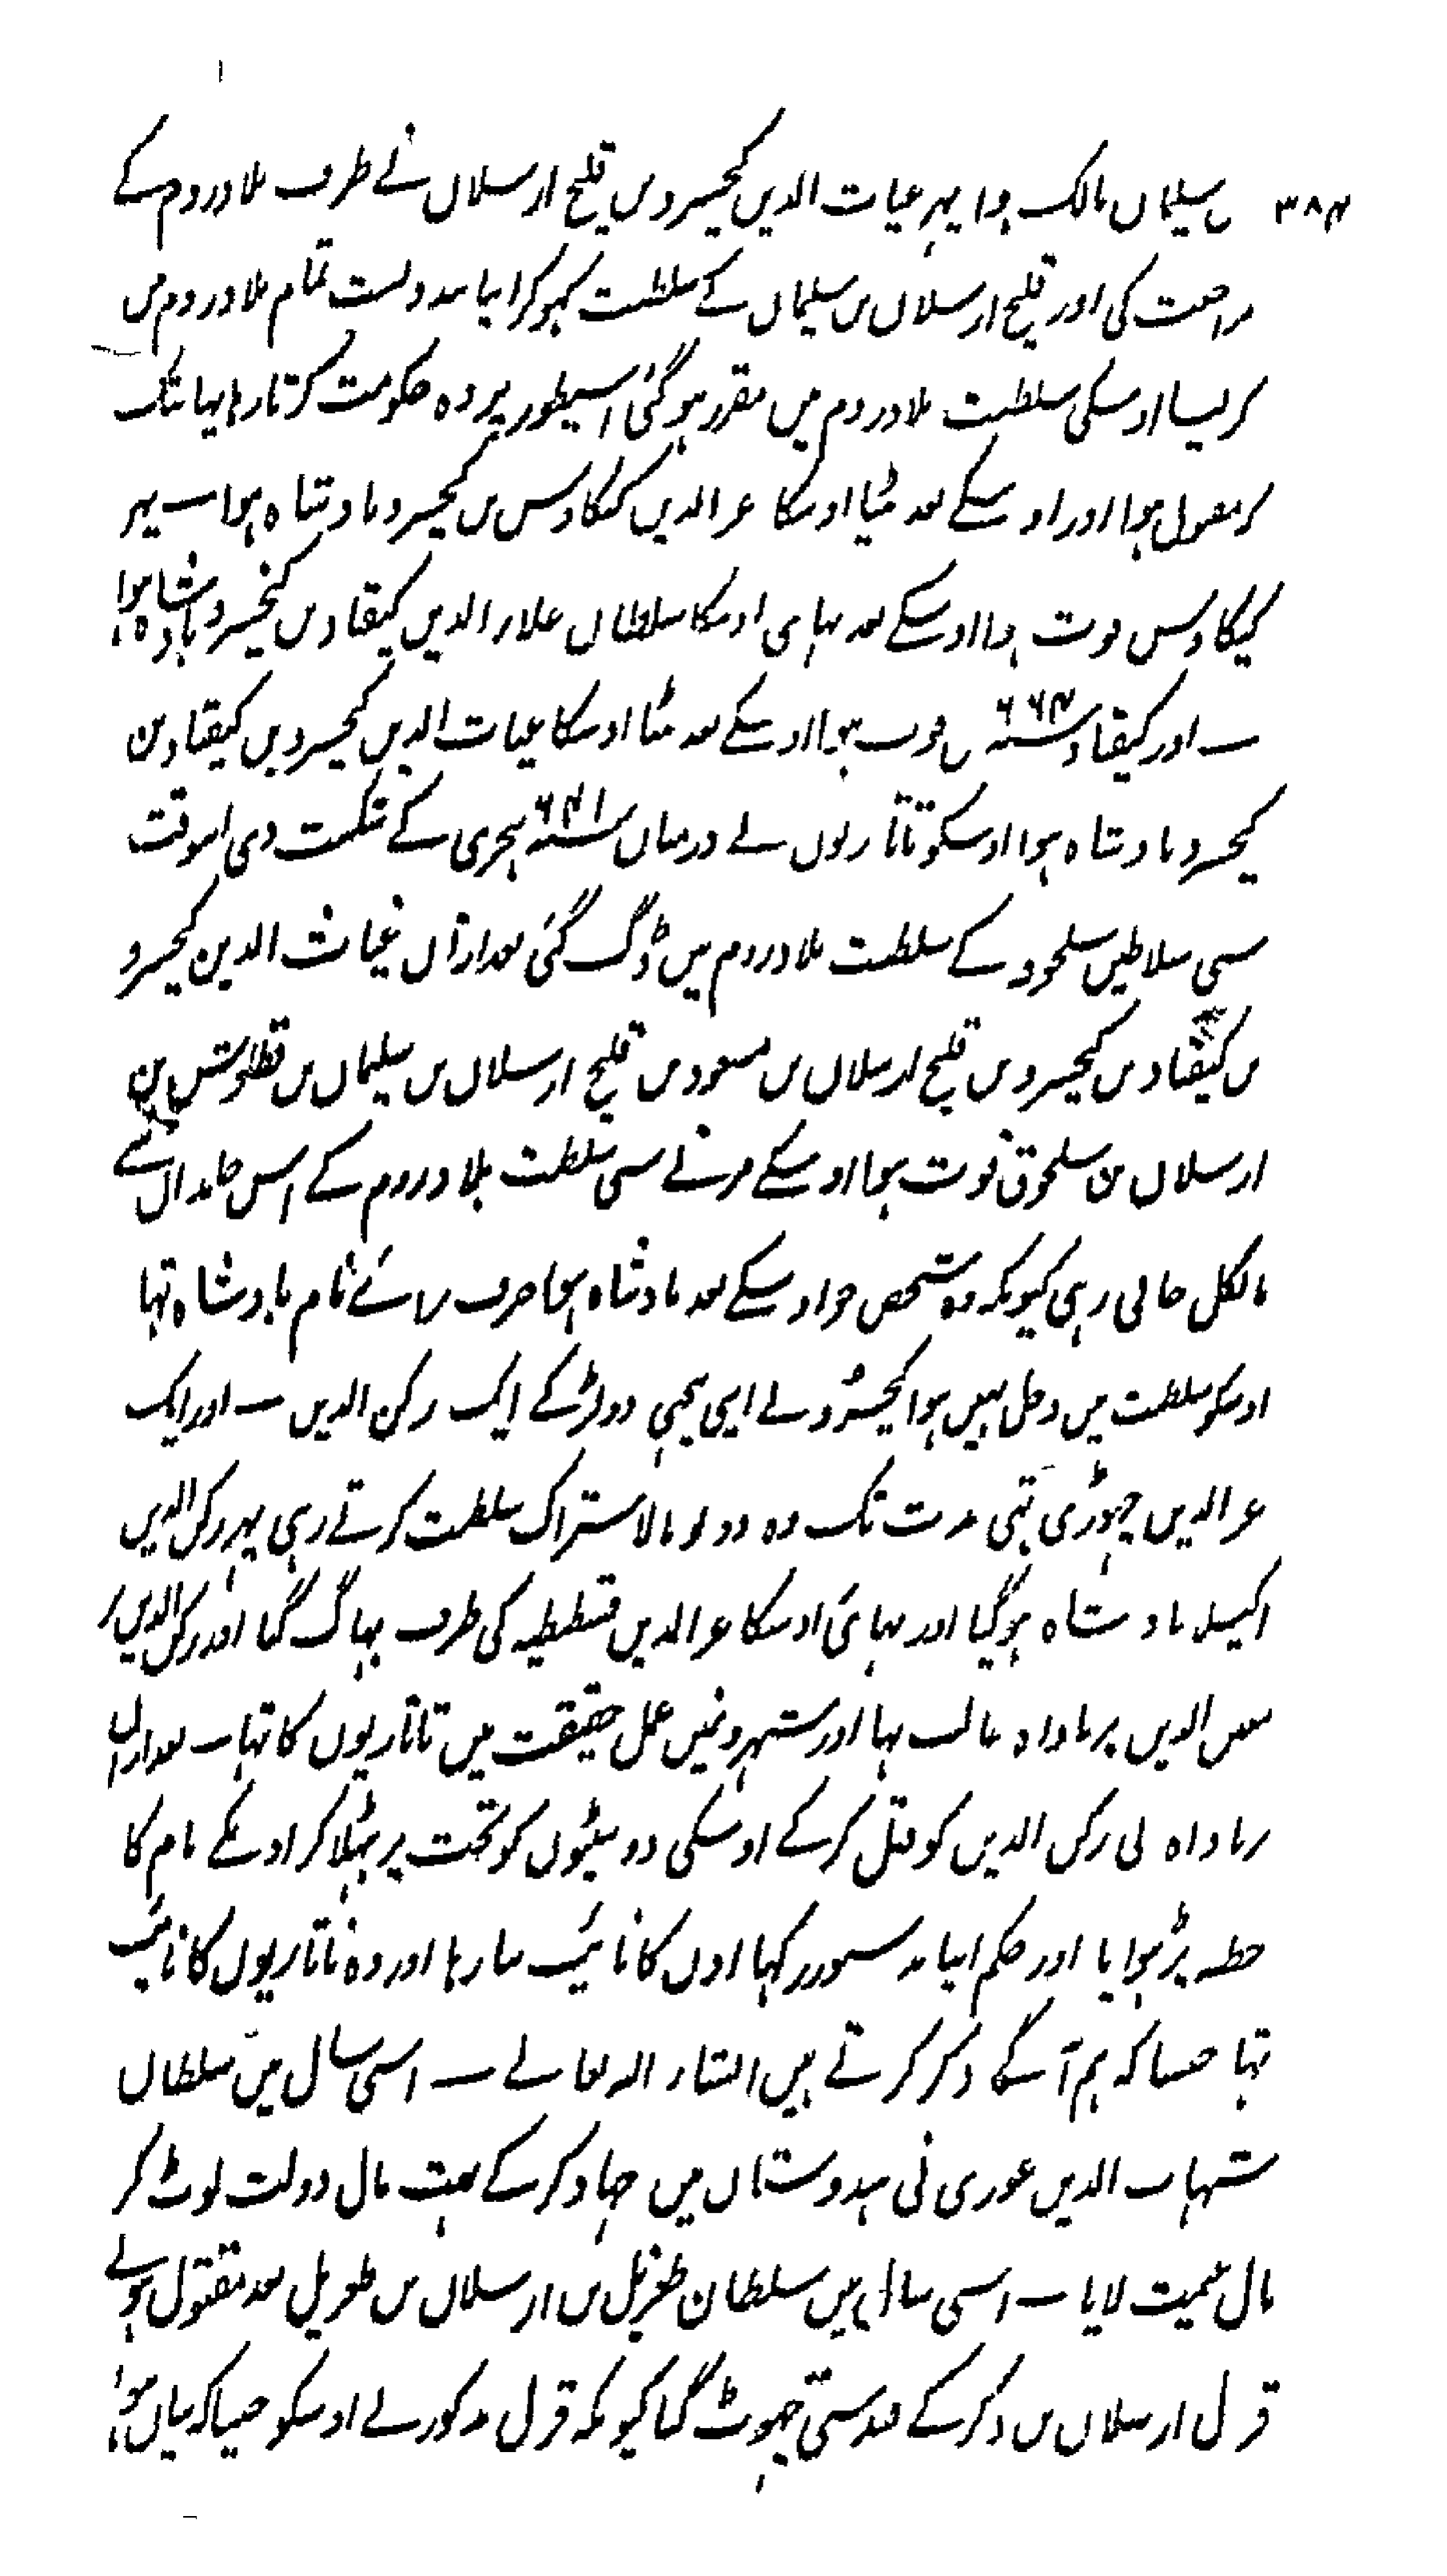 ۳۸۴ بن سلیمان مالک ہوا پہر غیاث الدین کیخسرو بن قلیج ارسلان نے طرف بلاد روم کے
مراجعت کی اور قلیج ارسلان بن سلیمان کے سلطنت کہو کر اپنا بندوبست تمام بلاد روم میں
کر لیا اوسکی سلطنت بلاد روم میں مقرر ہو گئی اسیطور پر وہ حکومت کرتا رہا یہانتک
کہ مقتول ہوا اور اوسکے بعد بیٹا اوسکا عز الدین کیکاوس بن کیخسرو بادشاہ ہوا ۔ پہر
کیکاوس فوت ہوا اوسکے بعد بہائی اوسکا سلطان علاء الدین کیقباد بن کیخسرو بادشاہ ہوا
۔ اور کیقباد سنہ ۶۶۴ میں فوت ہوا اوسکے بعد بیٹا اوسکا غیاث الدین کیخسرو بن کیقباد بن
کیخسرو بادشاہ ہوا اوسکو تاتاریوں نے درمیان سنہ ۶۴۱ ہجری کے شکست دی اسوقت
سی سلاطین سلجوقیہ کے سلطنت بلاد روم میں ڈگ گئی بعد ازاں غیاث الدین کیخسرو
بن کیقباد بن کیخسرو بن قلیج ارسلان بن مسعود بن قلیج ارسلان بن سلیمان بن قطلومش بن
ارسلان بن سلجوق فوت ہوا اوسکے مرنے سی سلطنت بلاد روم کے اس خاندان سے
بالکل خالی رہی کیونکہ وہ شخص جو اوسکے بعد بادشاہ ہوا صرف برائے نام بادشاہ تہا
اوسکو سلطنت میں دخل نہیں ہوا کیخسرو نے اپنی پیچہی دو لڑکے ایک رکن الدین ۔ اور ایک
عز الدین چہوڑی تہی مدت تک وہ دونو بالاشتراک سلطنت کرتے رہی پہر رکن الدین
اکیلا بادشاہ ہو گیا اور بہائی اوسکا عز الدین قسطنطیہ کی طرف بہاگ گیا اور رکن الدین پر
معین الدین برماواہ غالب تہا اور شہرونمیں عمل حقیقت میں تاتاریوں کا تہا ۔ بعد ازاں
برماواہ نی رکن الدین کو قتل کر کے اوسکی دو بیٹوں کو تخت پر بٹہلا کر اونکے نام کا
خطبہ پڑہوایا اور حکم اپنا بدستور رکہا اون کا نائب بنا رہا اور وہ تاتاریوں کا نائب
تہا جیسا کہ ہم آگے ذکر کرتے ہیں انشاء اللہ تعالے ۔ اسی سال میں سلطان
شہاب الدین غوری نی ہندوستان میں جہاد کر کے بہت مال دولت لوٹ کر
مال غنیمت لایا ۔ اسی سال میں سلطان طغرل بن ارسلان بن طغرل بعد مقتول ہونے
قزل ارسلان بن دکز کے قید سے چہوٹ گیا کیونکہ قزل مذکور نے اوسکو جیسا کہ بیان ہوا